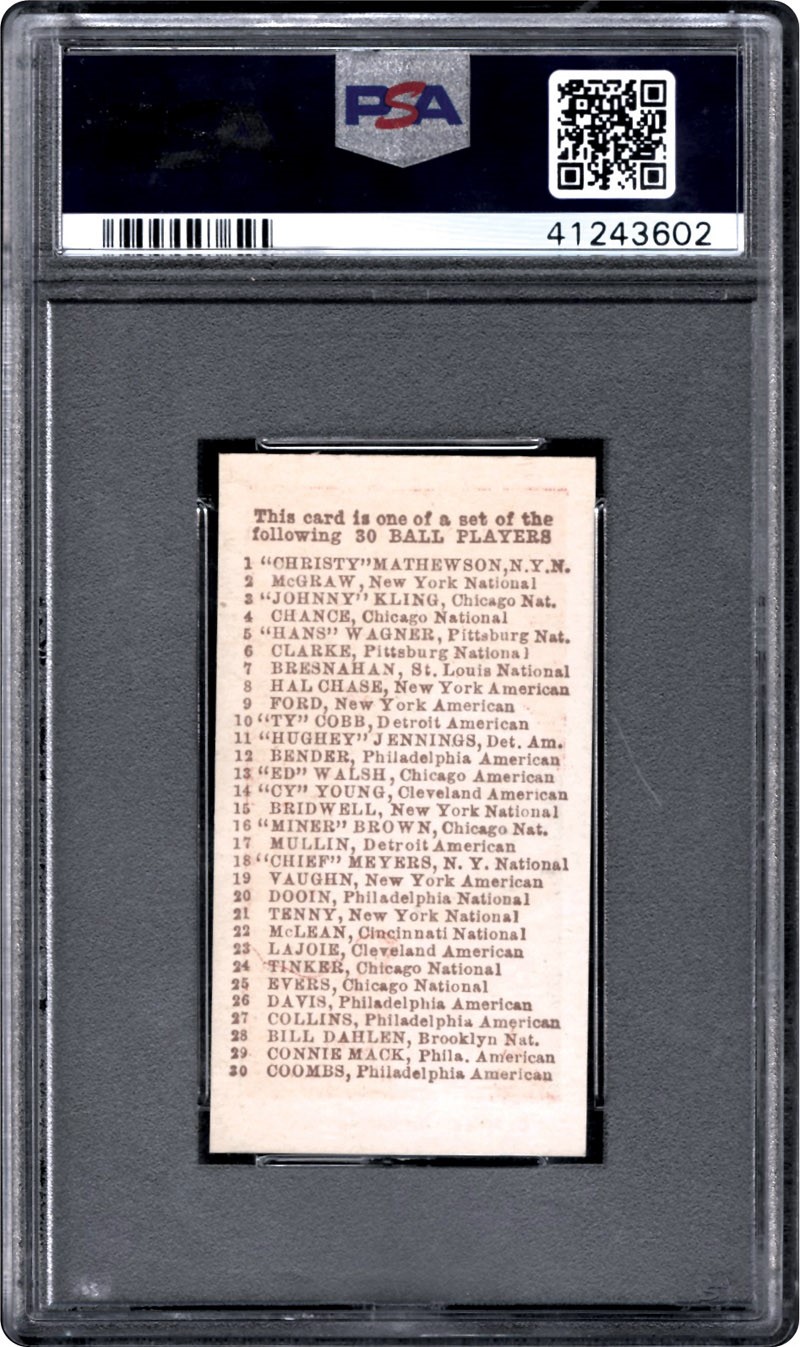 PSA
41243602
This card is one of a set of the
following 30 BALL PLAYERS
1 "CHRISTY" MATHEWSON, N.Y.N.
2 McGRAW, New York National
3 "JOHNNY" KLING, Chicago Nat.
4 CHANCE, Chicago National
5 "HANS" WAGNER, Pittsburg Nat.
6 CLARKE, Pittsburg National
7 BRESNAHAN, St. Louis National
8 HAL CHASE, New York American
9 FORD, New York American
10 "TY" COBB, Detroit American
11 "HUGHEY" JENNINGS, Det. Am.
12 BENDER, Philadelphia American
13 "ED" WALSH, Chicago American
14 "CY" YOUNG, Cleveland American
15 BRIDWELL, New York National
16 "MINER" BROWN, Chicago Nat.
17 MULLIN, Detroit American
18 "CHIEF" MEYERS, N. Y. National
19 VAUGHN, New York American
20 DOOIN, Philadelphia National
21 TENNY, New York National
22 McLEAN, Cincinnati National
23 LAJOIE, Cleveland American
24 TINKER, Chicago National
25 EVERS, Chicago National
26 DAVIS, Philadelphia American
27 COLLINS, Philadelphia American
28 BILL DAHLEN, Brooklyn Nat.
29 CONNIE MACK, Phila. American
30 COOMBS, Philadelphia American